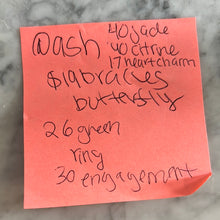 @ash 40 jade
40 citrine
17 heart charm
$19 bracles
butterfly
26 green
ring
30 engagement